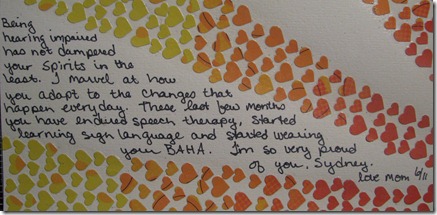 Being
hearing impaired
has not dampered
your spirits in the
least. I marvel at how
you adapt to the changes that
happen everyday. These last few months
you have endured speech therapy, started
learning sign language and started wearing
your BAHA. I'm so very proud
of you, Sydney.
love mom 6/11